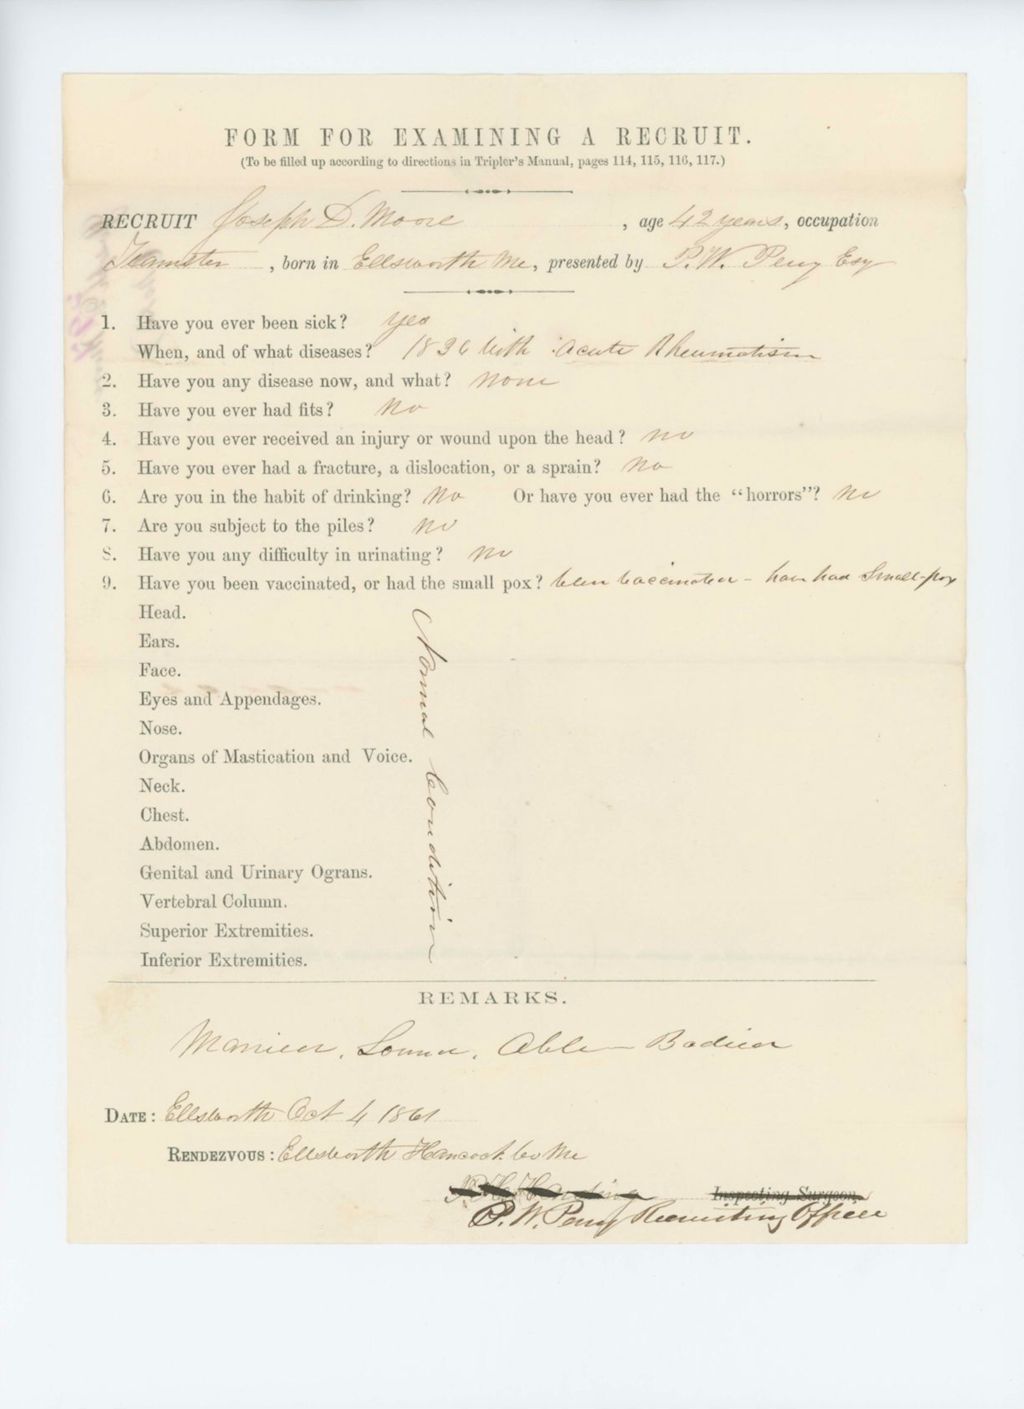 FORM FOR EXAMINING A RECRUIT.
(To be filled up according to directions in Tripler's Manual, pages 114, 115, 116, 117.)
RECRUIT Joseph D. Moore, age 42 years, occupation
Teamster, born in Ellsworth Me, presented by P. W. Perry Esq
1. Have you ever been sick? yes
When, and of what diseases? 1836 with Acute Rheumatism
2. Have you any disease now, and what? None
3. Have you ever had fits? No
4. Have you ever received an injury or wound upon the head? no
5. Have you ever had a fracture, a dislocation, or a sprain? No
6. Are you in the habit of drinking? No Or have you ever had the "horrors"? No
7. Are you subject to the piles? No
8. Have you any difficulty in urinating? No
9. Have you been vaccinated, or had the small pox? been vaccinated - have had Small-pox
Head.
Ears.
Face.
Eyes and Appendages.
Nose.
Organs of Mastication and Voice.
Neck.
Chest.
Abdomen.
Genital and Urinary Ograns.
Vertebral Column.
Superior Extremities.
Inferior Extremities.
Normal Condition
REMARKS.
Married, Sound, Able Bodied
DATE: Ellsworth Oct 4 1861
RENDEZVOUS: Ellsworth Hancock Co Me
Inspecting Surgeon.
P. W. Perry Recruiting Officer